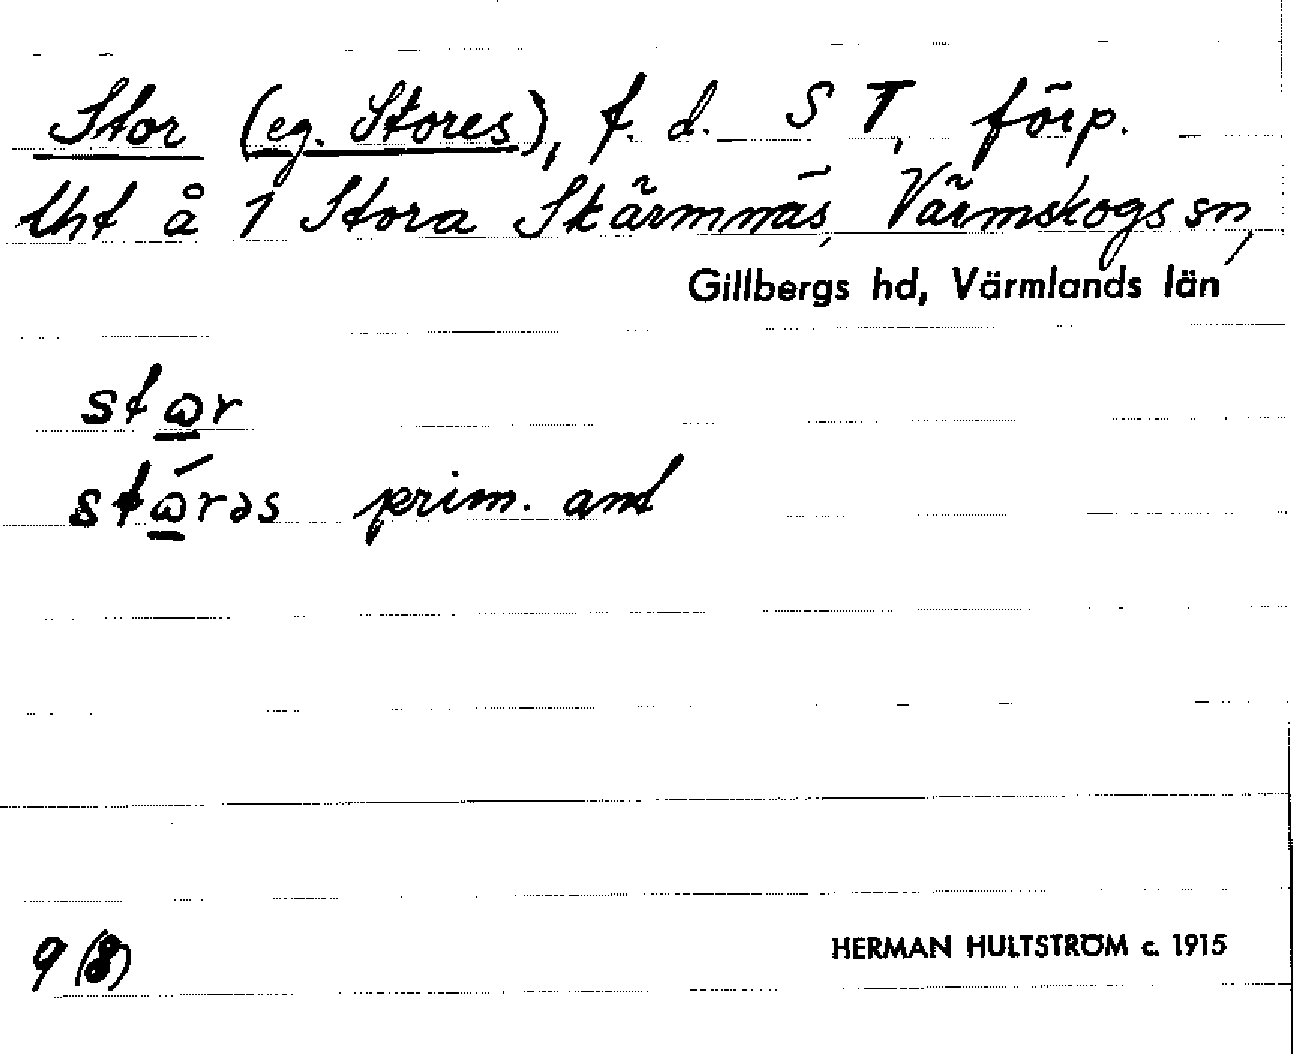 Stor (eg. Stores), f. d. S T, förp.
lht å 1 Stora Skärmnäs, Värmskogs sn,
Gillbergs hd, Värmlands län
stɷr
stɷ́rəs prim. ant
9 (8)
HERMAN HULTSTRÖM c. 1915